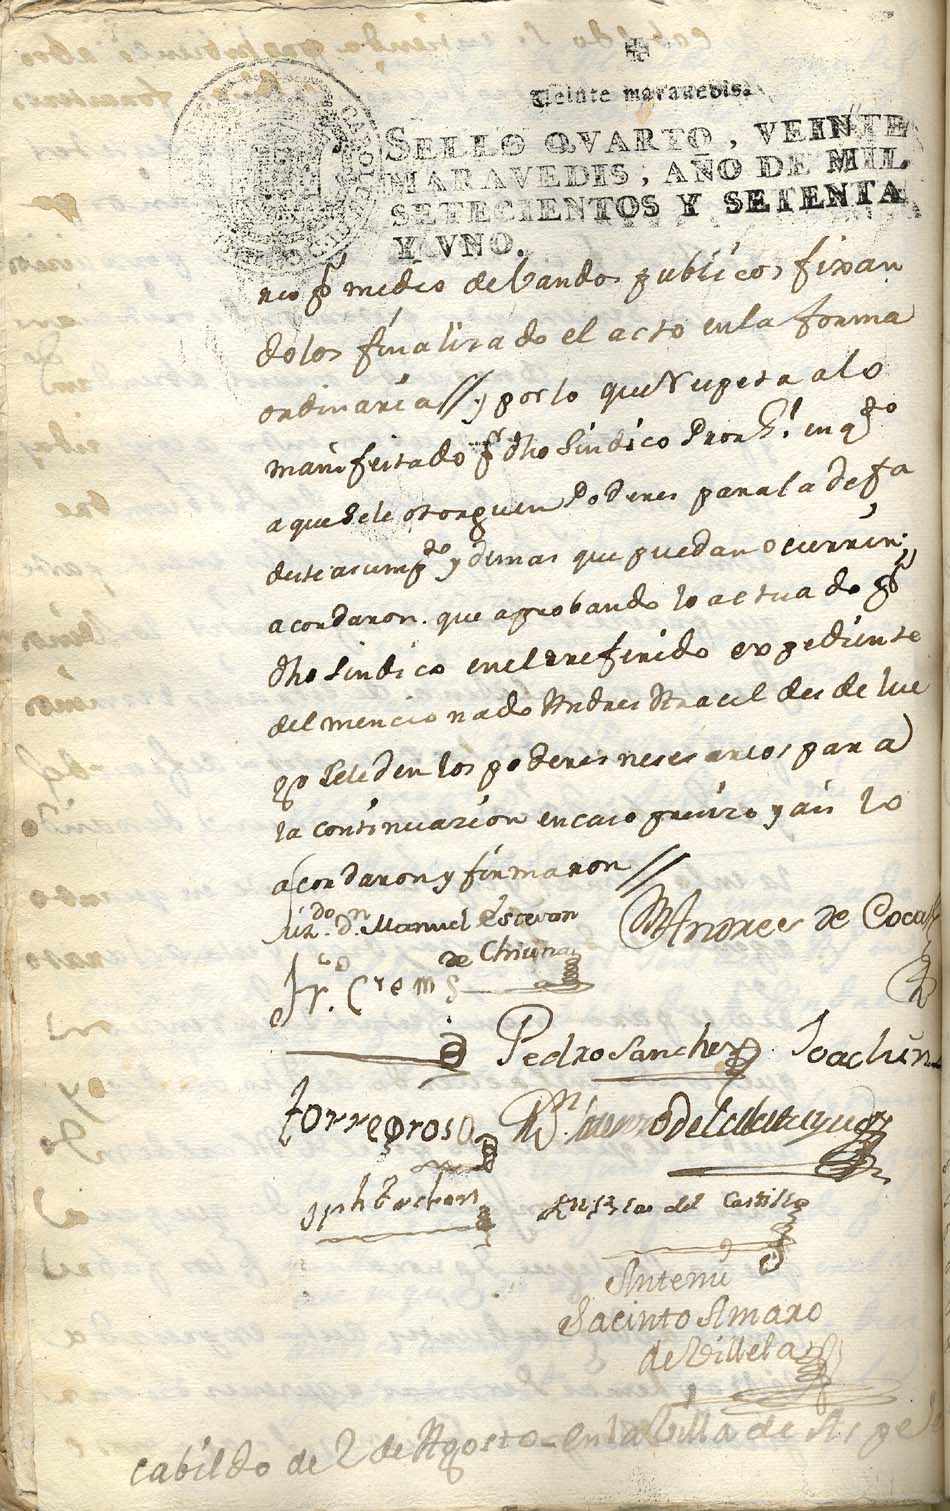 Veinte maravedis.
SELLO QVARTO, VEINTE
MARAVEDIS, AÑO DE MIL
SETECIENTOS Y SETENTA
Y VNO.
CAROLUS
rio pr medio de bandos publicos fixan
dolos finalizado el acto en la forma
ordinaria // y por lo que respeta a lo
manifestado pr dho Sindico Pror Gl en qdo
a que se le otorguen Poderes para la defsa
deste asumpto y demas que puedan ocurrir;
acordaron que aprobando lo actuado pr
dho Sindico en el rreferido expediente
del mencionado Andres Aracil desde lue
go se le den los poderes nesesarios para
la continuazion en caso preziso y asi lo
acordaron y firmaron //
Lizdo Dn Manuel Estevan
de Chinna
Andres de Coca
Fco Crems
Pedro Sanchez
Joachin
torregrosa
Jph
del Castillo
Antemi
Jacinto Amaro
de Villeta
Cabildo de 2 de Agosto - En la Villa de Aspe